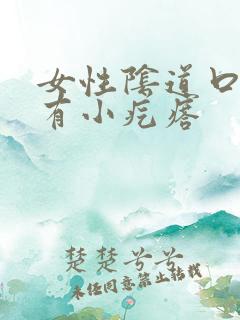 女性陰道口
有小疙瘩
楚楚兮兮
未经同意禁止转载